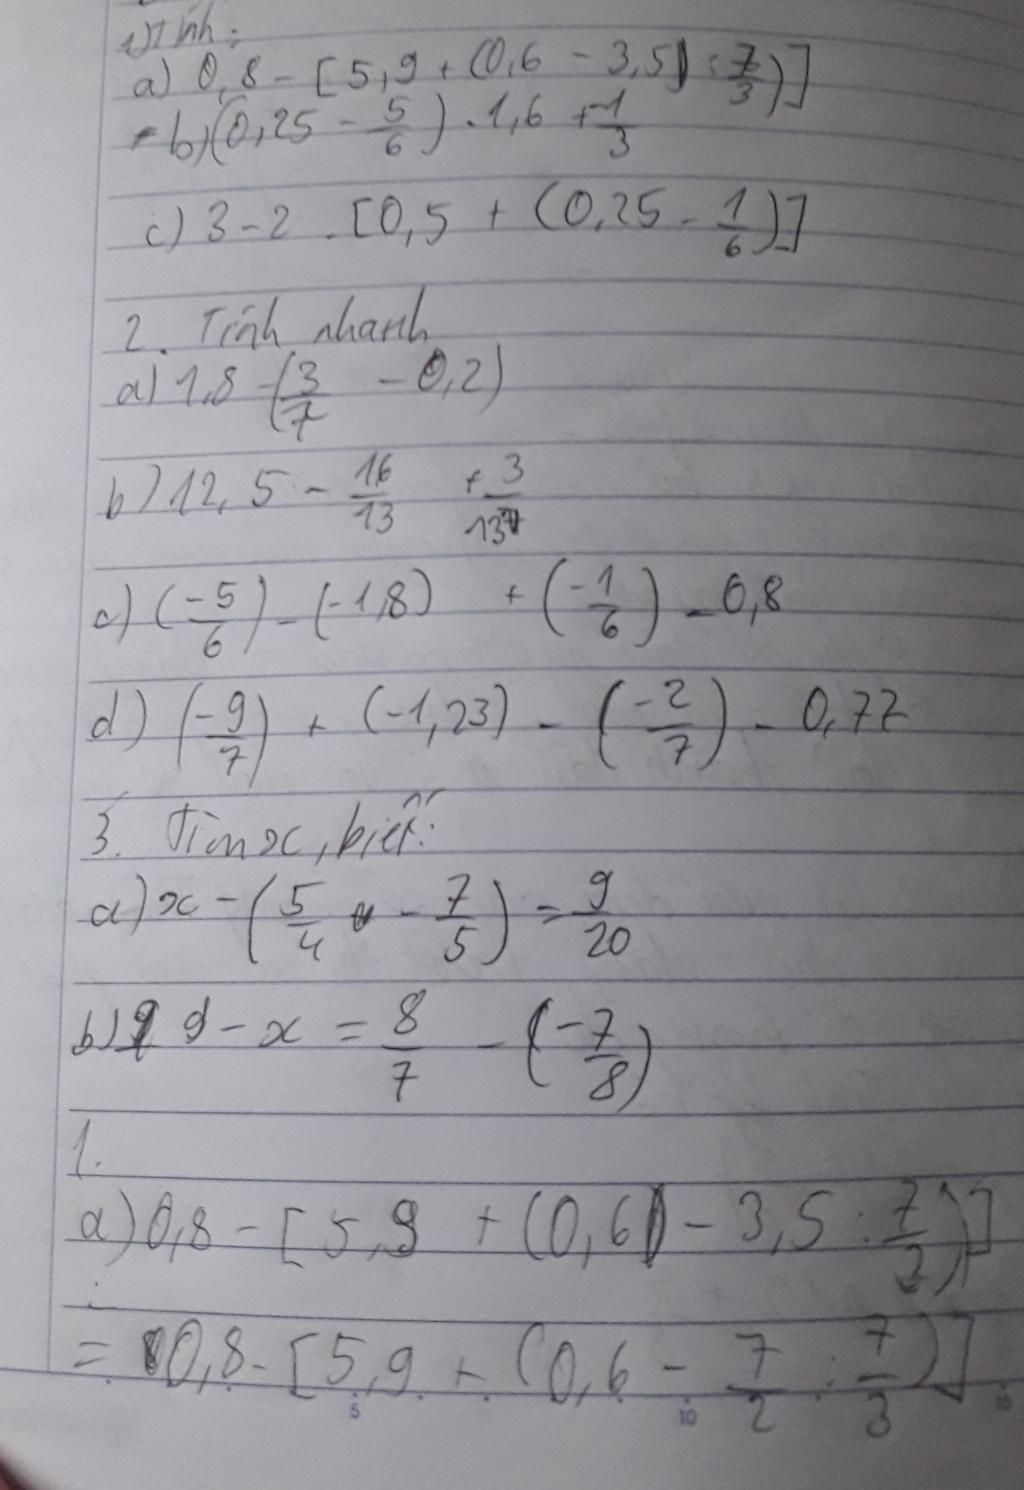 1) Tính:
a) 0,8 - [5,9 + (0,6 - 3,5 : 7/3)]
b) (0,25 - 5/6) . 1,6 + -1/3
c) 3 - 2 . [0,5 + (0,25 - 1/6)]
2. Tính nhanh
a) 1,8 - (3/7 - 0,2)
b) 12,5 - 16/13 + 3/13
c) (-5/6) - (-1,8) + (-1/6) - 0,8
d) (-9/7) + (-1,23) - (-2/7) - 0,77
3. Tìm x, biết:
a) x - (5/4 - 7/5) = 9/20
b) 9 - x = 8/7 - (-7/8)
1.
a) 0,8 - [5,9 + (0,6 - 3,5 : 7/2)]
= 0,8 - [5,9 + (0,6 - 7/2 : 7/3)]
5 10 15